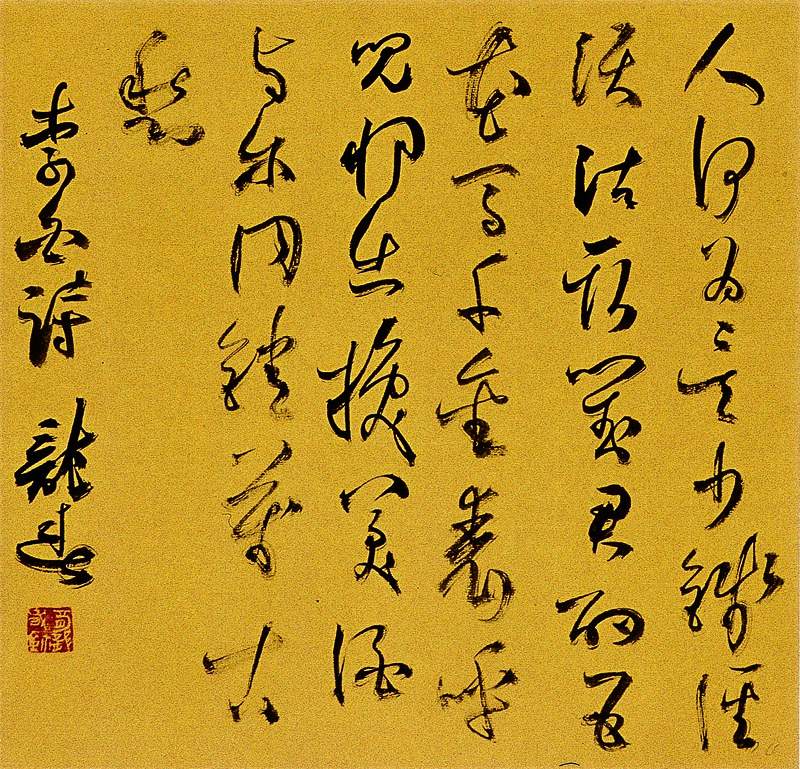 人何為言少錢徑
須沽取對君酌五
花馬千金裘呼
兒將出換美酒
與尔同銷萬古
愁
李白詩